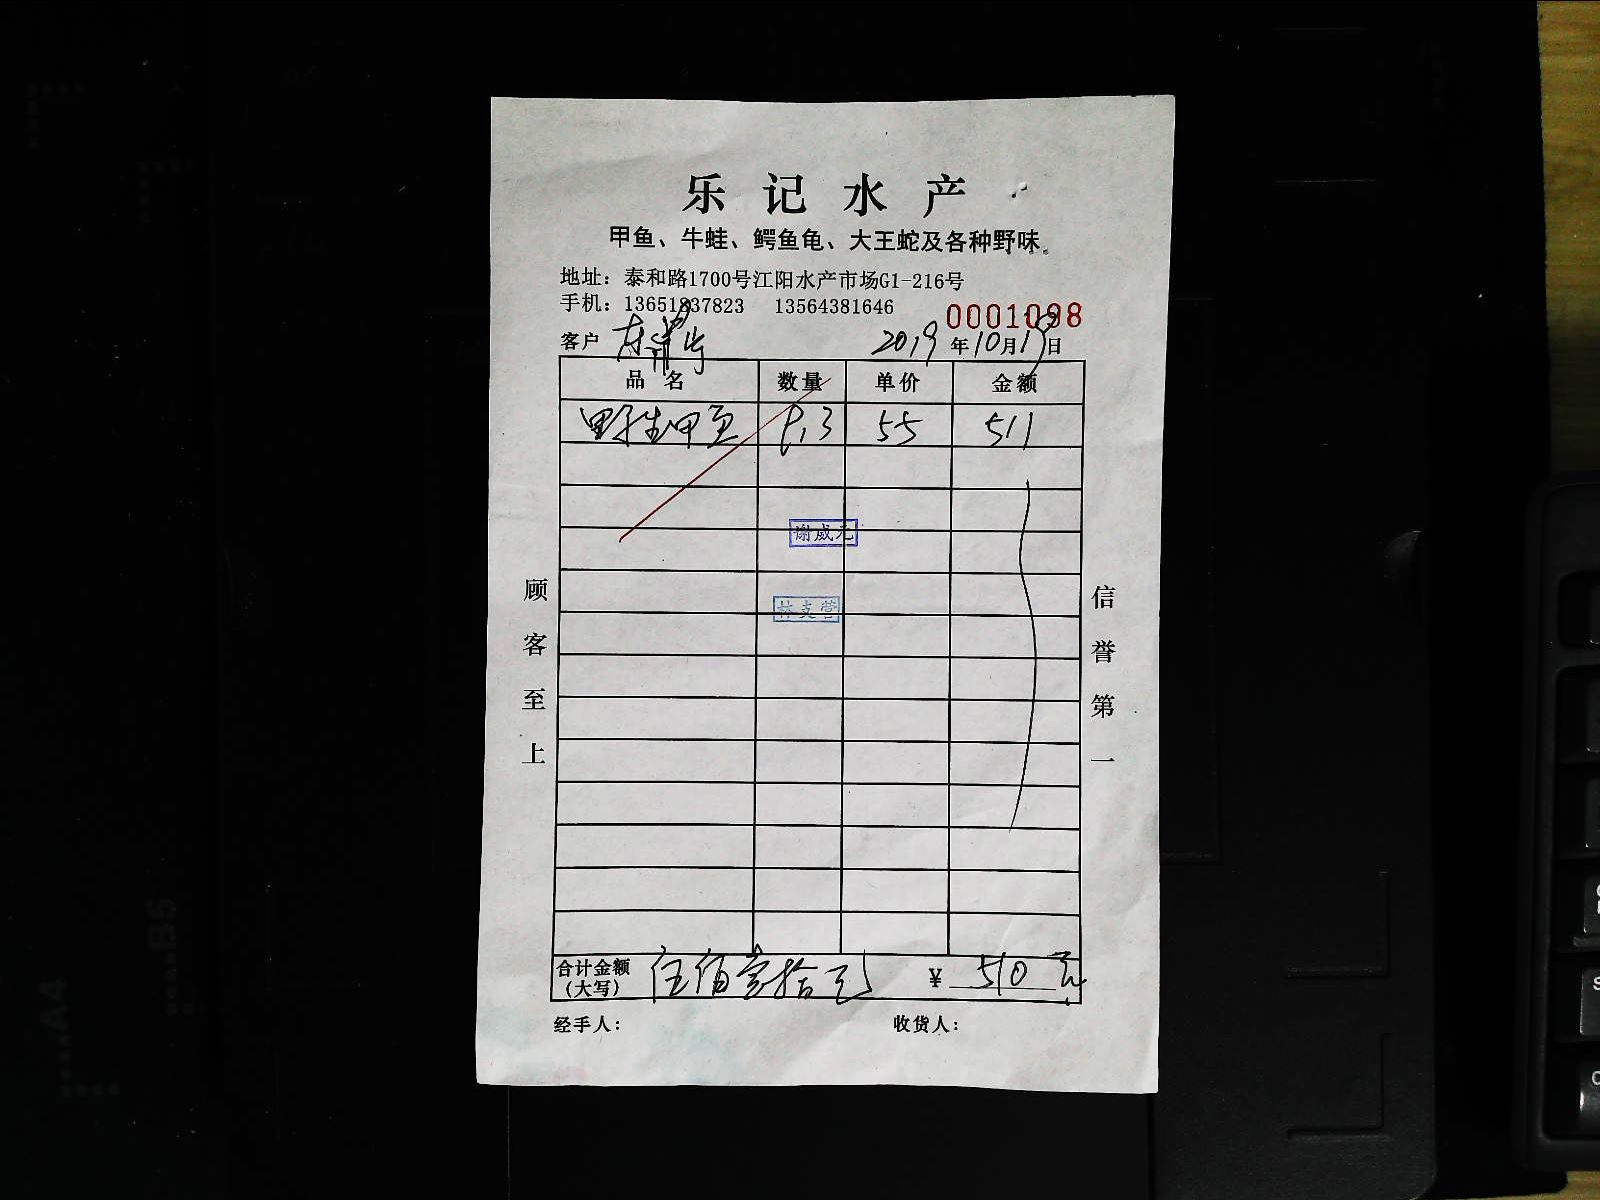 乐记水产
甲鱼、牛蛙、鳄鱼龟、大王蛇及各种野味。
地址：泰和路1700号江阳水产市场G1-216号
手机：13651837823 13564381646
0001098
客户 2019年10月19日
品名 数量 单价 金额
野生甲鱼 9.3 55 511
谢威元
林支营
顾客至上
信誉第一
合计金额（大写） 伍佰壹拾元 ¥ 510元
经手人： 收货人：